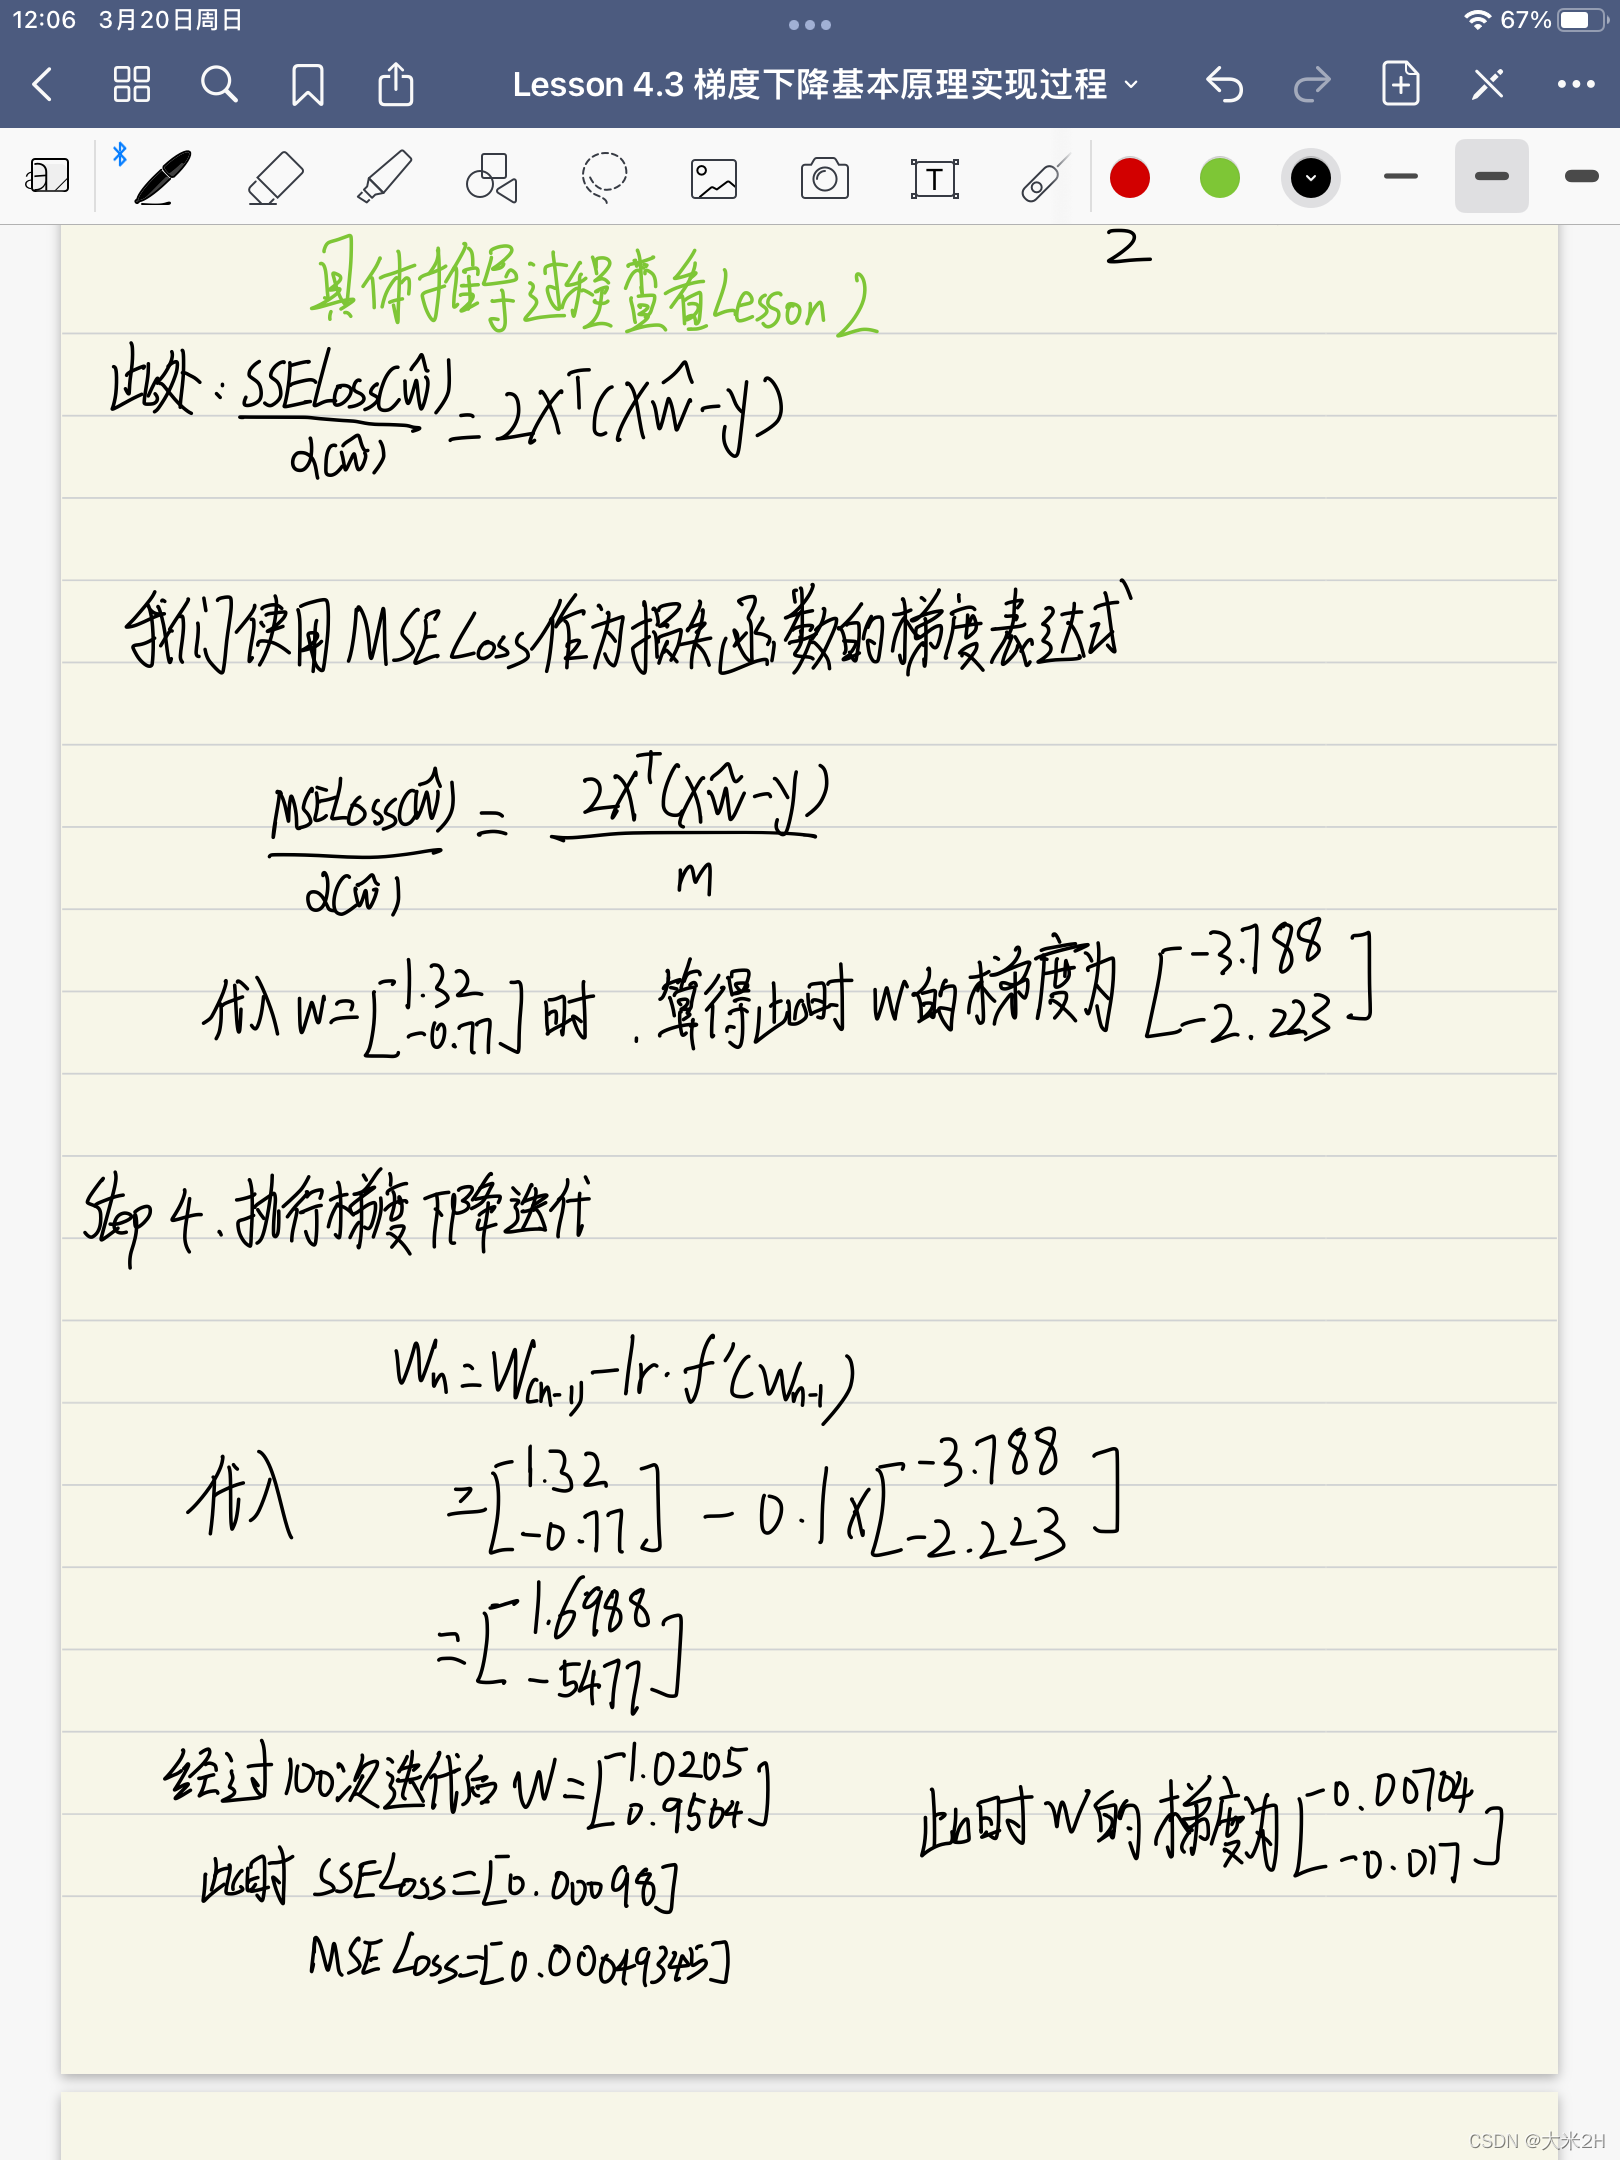 12:06 3月20日周日
67%
Lesson 4.3 梯度下降基本原理实现过程
T
2
具体推导过程查看Lesson 2
此处: SSELoss(ŵ)
d(ŵ)
= 2X^T(Xŵ-y)
我们使用MSELoss作为损失函数的梯度表达式
MSELoss(ŵ) = 2X^T(Xŵ-y)
d(ŵ) m
代入 w=[1.32 -0.77]时, 算得此时 w的梯度为 [-3.788 -2.223]
Step 4. 执行梯度下降迭代
Wn=W(n-1)-lr·f'(Wn-1)
代入 =[1.32 -0.77] - 0.1×[-3.788 -2.223]
=[1.6988 -5477]
经过100次迭代后 W=[1.0205 0.9504] 此时 W的梯度为[-0.00704 -0.017]
此时 SSELoss=[0.00098]
MSELoss=[0.00049345]
CSDN @大米2H